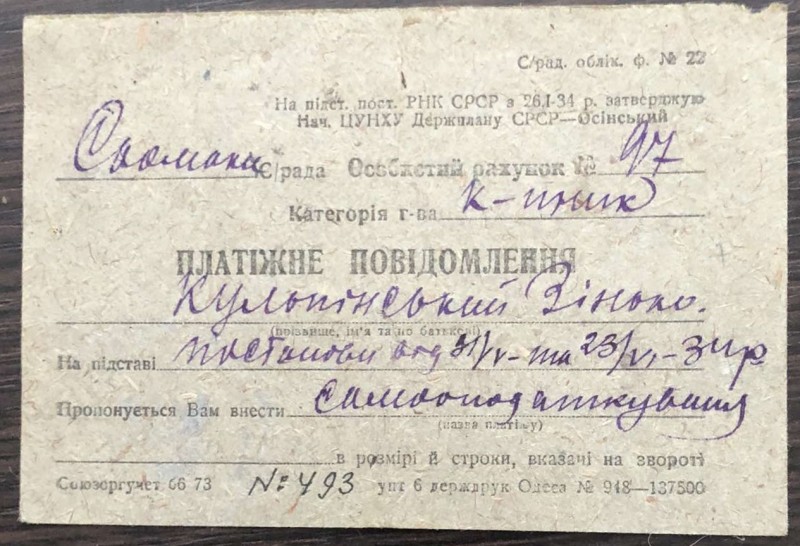 С/рад. облік. ф. № 22
На підст. пост. РНК СРСР з 26.I-34 р. затверджую
Нач. ЦУНХУ Держплану СРСР—Осінський
С/рада Особистий рахунок № 97
Категорія г-ва К-ник
ПЛАТІЖНЕ ПОВІДОМЛЕННЯ
Зінько
(прізвище, ім'я та по батькові)
На підставі постанови від 31/V- та 23/VI-34р
Пропонується Вам внести самооподаткування
(назва платіжу)
в розмірі й строки, вказані на звороті
Союзоргучет 66 73 № 493 упт 6 держдрук Одеса № 948—137500